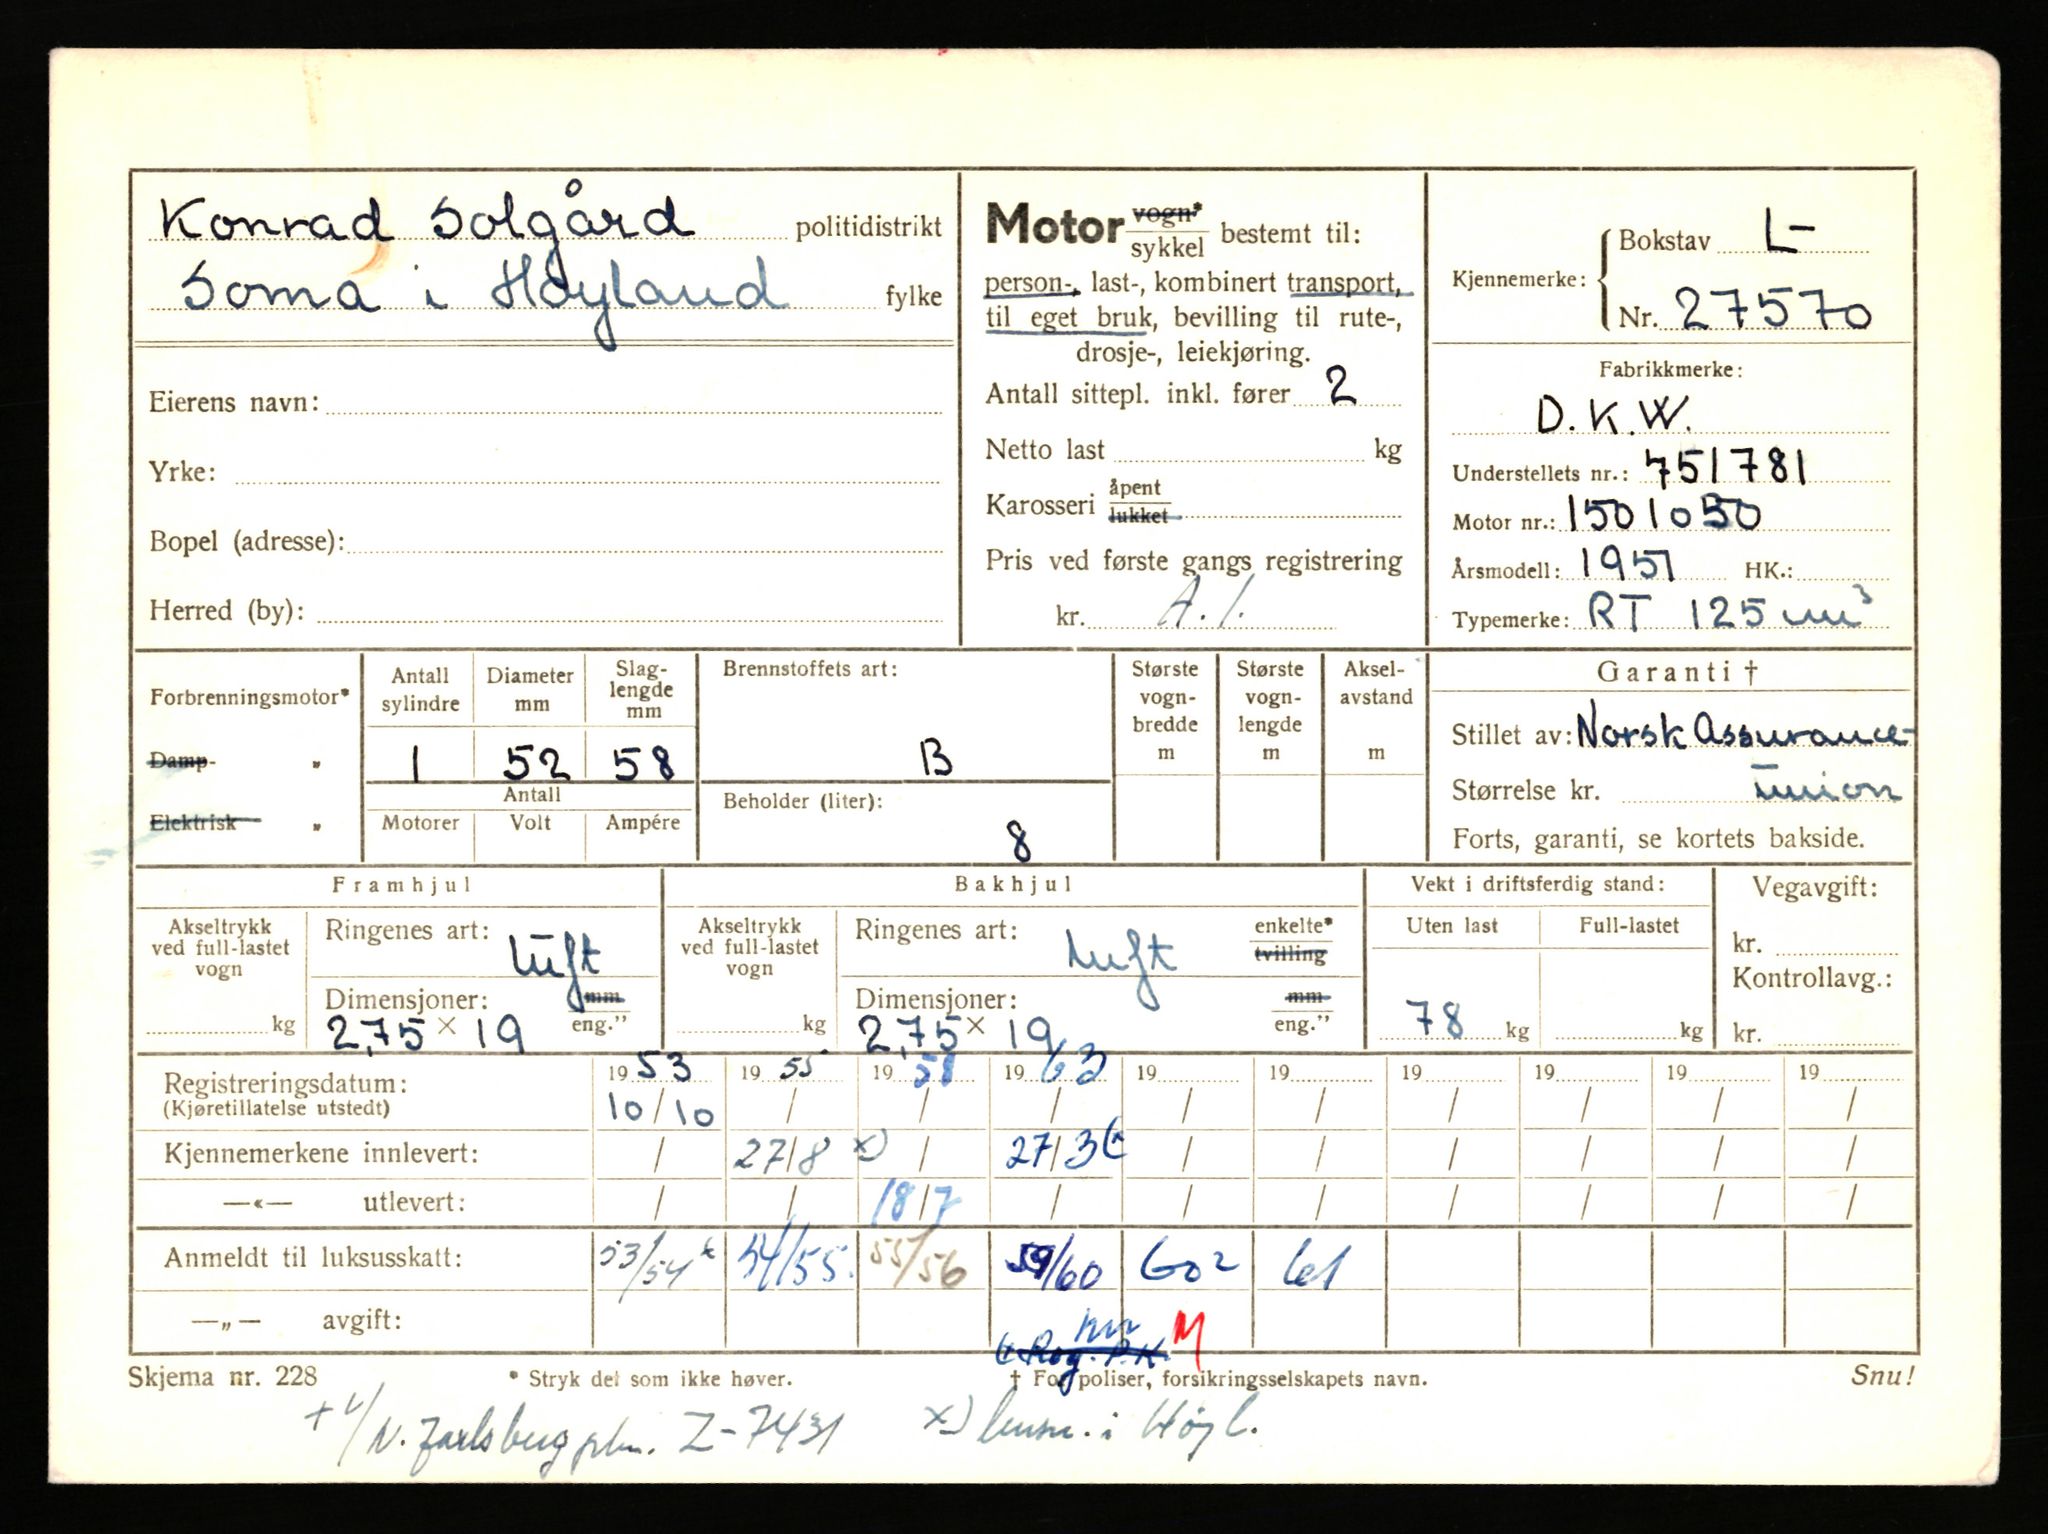 Konrad Solgård politidistrikt
Soma i Høyland fylke
Eierens navn:
Yrke:
Bopel (adresse):
Herred (by):
Motor vogn*
sykkel bestemt til:
person-, last-, kombinert transport,
til eget bruk, bevilling til rute-,
drosje-, leiekjøring.
Antall sittepl. inkl. fører 2
Netto last kg
Karosseri åpent
lukket
Pris ved første gangs registrering
kr. A. I.
Kjennemerke: Bokstav L-
Nr. 27570
Fabrikkmerke:
D.K.W.
Understellets nr.: 751781
Motor nr.: 1501050
Årsmodell: 1951 HK.:
Typemerke: RT 125 m³
Forbrenningsmotor*
Damp- „
Elektrisk „
Antall sylindre Diameter mm Slag-lengde mm
1 52 58
Antall
Motorer Volt Ampére
Brennstoffets art:
B
Beholder (liter):
8
Største vogn-bredde m
Største vogn-lengde m
Aksel-avstand m
Garanti †
Stillet av: Norsk Assurance-
Størrelse kr. Union
Forts, garanti, se kortets bakside.
Framhjul
Akseltrykk ved full-lastet vogn
kg
Ringenes art: Luft
Dimensjoner: mm
2,75 × 19 eng.”
Bakhjul
Akseltrykk ved full-lastet vogn
kg
Ringenes art: Luft enkelte*
tvilling
Dimensjoner: mm
2,75 × 19 eng.”
Vekt i driftsferdig stand:
Uten last Full-lastet
78 kg kg
Vegavgift:
kr.
Kontrollavg.:
kr.
Registreringsdatum: 1953 1955 1958 1963 19 19 19 19 19 19
(Kjøretillatelse utstedt) 10/10 / / / / / / / / /
Kjennemerkene innlevert: / 27/8 x) / 27/3 / / / / / /
—«— utlevert: / / 18/7 / / / / / / /
Anmeldt til luksusskatt: 53/54 54/55. 55/56 59/60 60² 61
—„— avgift:
Rog. P.K. M
Skjema nr. 228 * Stryk det som ikke høver. † For poliser, forsikringsselskapets navn. Snu!
+ N. Jarlsberg Z-7431 x) i Høyl.